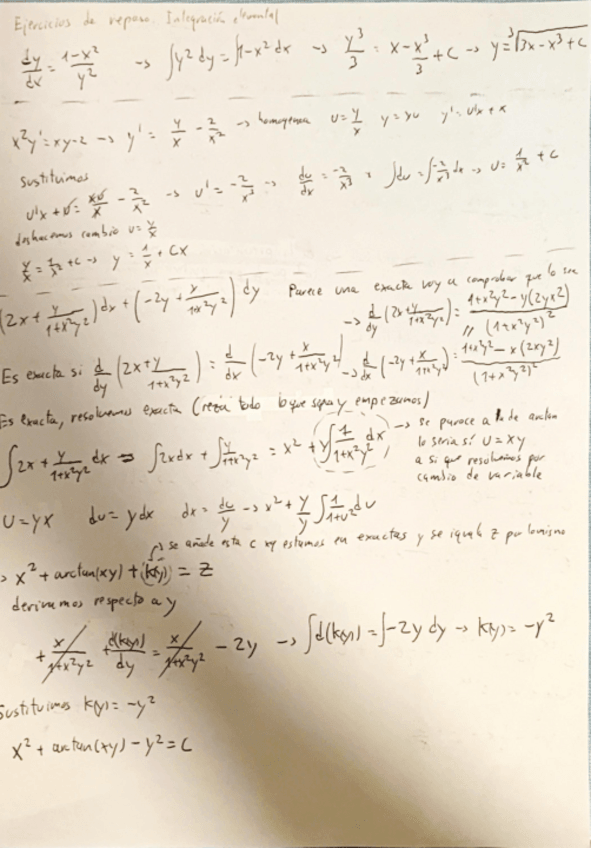 Ejercicios de repaso. Integración elemental
dy/dx = 1-x²/y² → ∫y² dy = ∫1-x² dx → y³/3 = x - x³/3 + C → y = ³√3x - x³ + C
x²y' = xy - 2 → y' = y/x - 2/x² → homogenea u = y/x y = xu y' = u'x + x
Sustituimos
u'x + u = xu/x - 2/x² → u' = -2/x³ → du/dx = -2/x³ = ∫du = ∫-2/x³ dx → u = 1/x² + C
deshacemos cambio u = y/x
y/x = 1/x² + C → y = 1/x + Cx
(2x + y/1+x²y²) dx + (-2y + x/1+x²y²) dy Parece una exacta voy a comprobar que lo sea
→ d/dy (2x + y/1+x²y²) = 1+x²y² - y(2yx²)/(1+x²y²)²
Es exacta si d/dy (2x + y/1+x²y²) = d/dx (-2y + x/1+x²y²) → d/dx (-2y + x/1+x²y²) = 1+x²y² - x(2xy²)/(1+x²y²)²
Es exacta, resolvemos exacta (rezar todo lo que sepa y empezamos)
∫2x + y/1+x²y² dx = ∫2xdx + ∫y/1+x²y² = x² + y∫1/1+x²y² dx → se parece a la de arctan
lo seria si u = xy
a si que resolvemos por
cambio de variable
u = yx du = y dx dx = du/y → x² + y/y ∫1/1+u² du
→ se añade esta c xq estamos en exactas y se iguala z por lo mismo
→ x² + arctan(xy) + k(y) = z
derivamos respecto a y
+ x/1+x²y² + d(k(y))/dy = x/1+x²y² - 2y → ∫d(k(y)) = ∫-2y dy → k(y) = -y²
Sustituimos k(y) = -y²
x² + arctan(xy) - y² = C